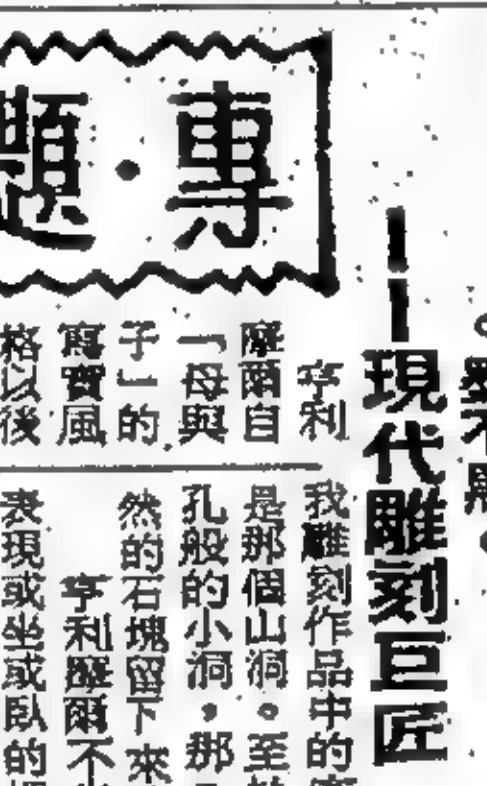 現代雕刻巨匠
專・題
亨利
摩爾自
「母與
子」的
寫實風
格以後
我雕刻作品中的
是那個山洞。至
孔般的小洞，那
然的石塊留下來
亨利摩爾不
表現或坐或臥的